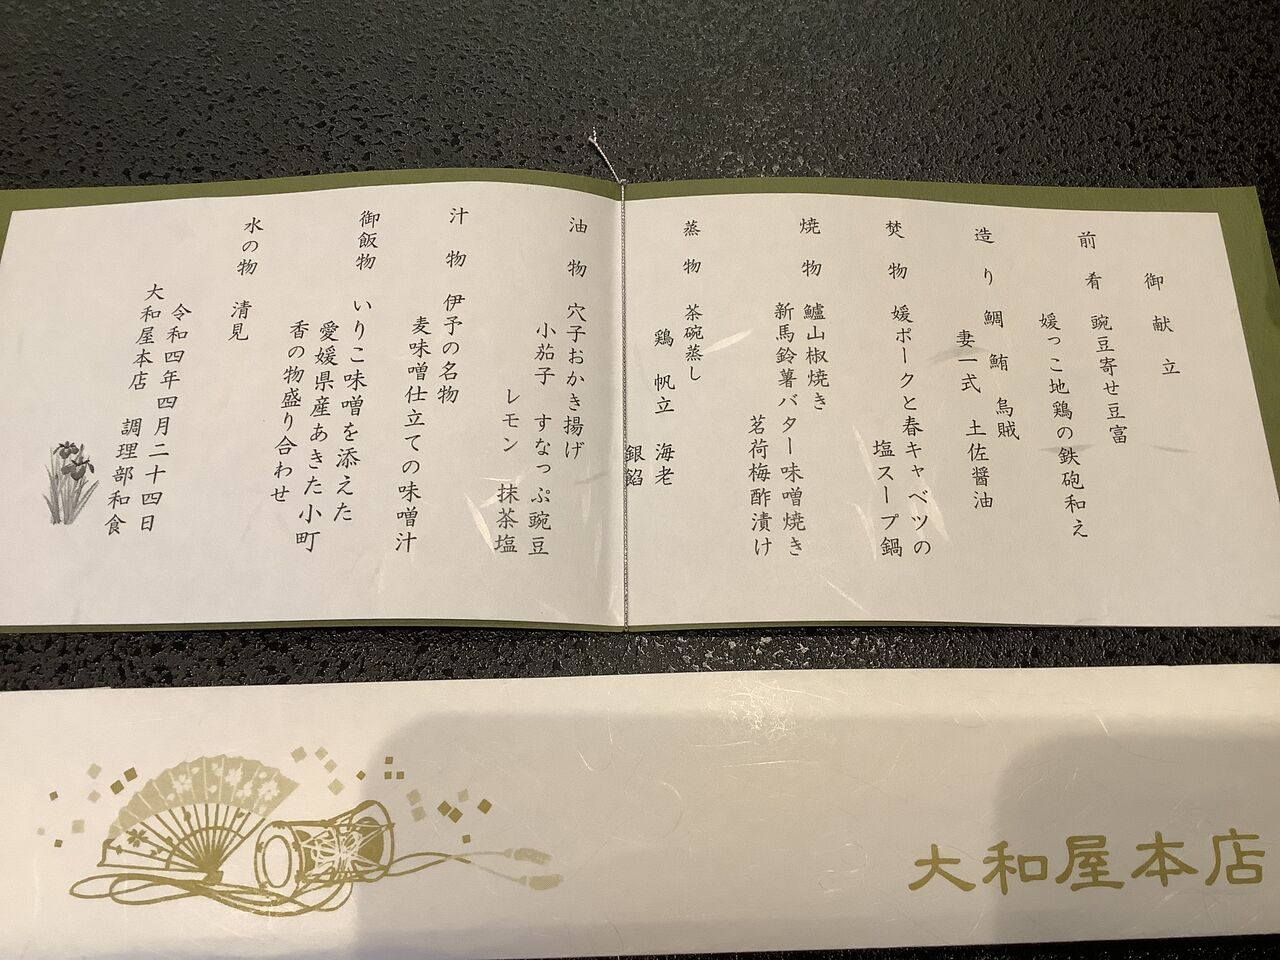 御献立
前肴 豌豆寄せ豆富
媛っこ地鶏の鉄砲和え
造り 鯛 鮪 烏賊
妻一式 土佐醤油
焚物 媛ポークと春キャベツの
塩スープ鍋
焼物 鱸山椒焼き
新馬鈴薯バター味噌焼き
茗荷梅酢漬け
蒸物 茶碗蒸し
鶏 帆立 海老
銀餡
油物 穴子おかき揚げ
小茄子 すなっぷ豌豆
レモン 抹茶塩
汁物 伊予の名物
麦味噌仕立ての味噌汁
御飯物 いりこ味噌を添えた
愛媛県産あきた小町
香の物盛り合わせ
水の物 清見
令和四年四月二十四日
大和屋本店 調理部和食
大和屋本店